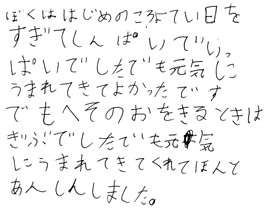 ぼくははじめのころていい日を
すぎてしんぱいでいっ
ぱいでしたでも元気に
うまれてきてよかったです
でもへそのおをきるときは
ぎぶでしたでも元気
にうまれてきてくれてほんと
あんしんしました。